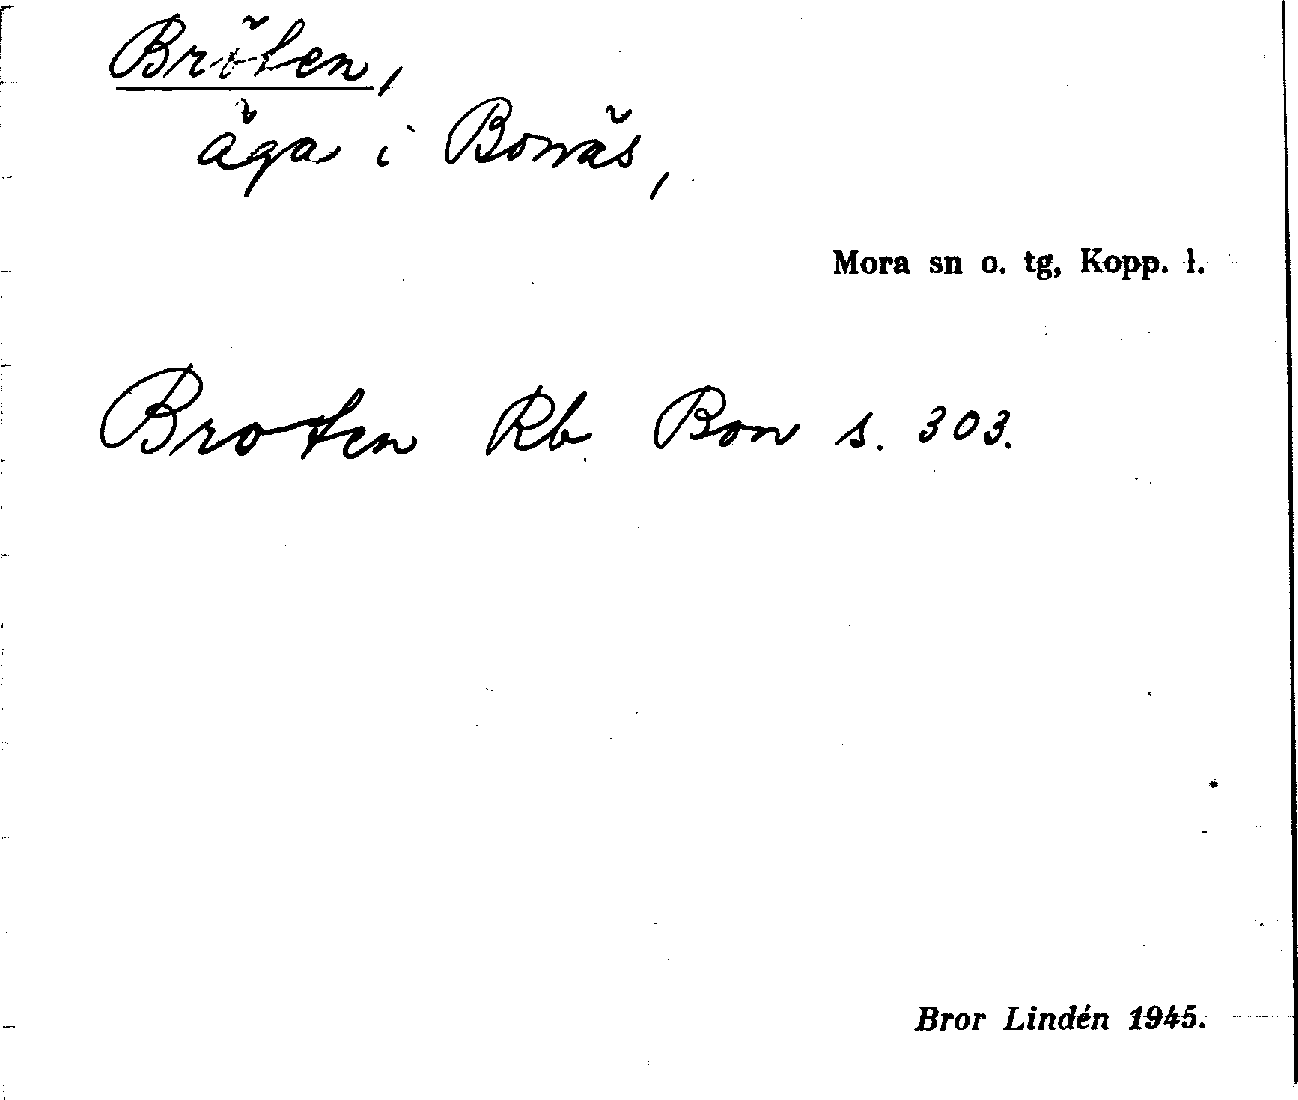 Bröten,
äga i Bonäs,
Mora sn o. tg, Kopp. l.
Broten Rb Bon s. 303.
Bror Lindén 1945.